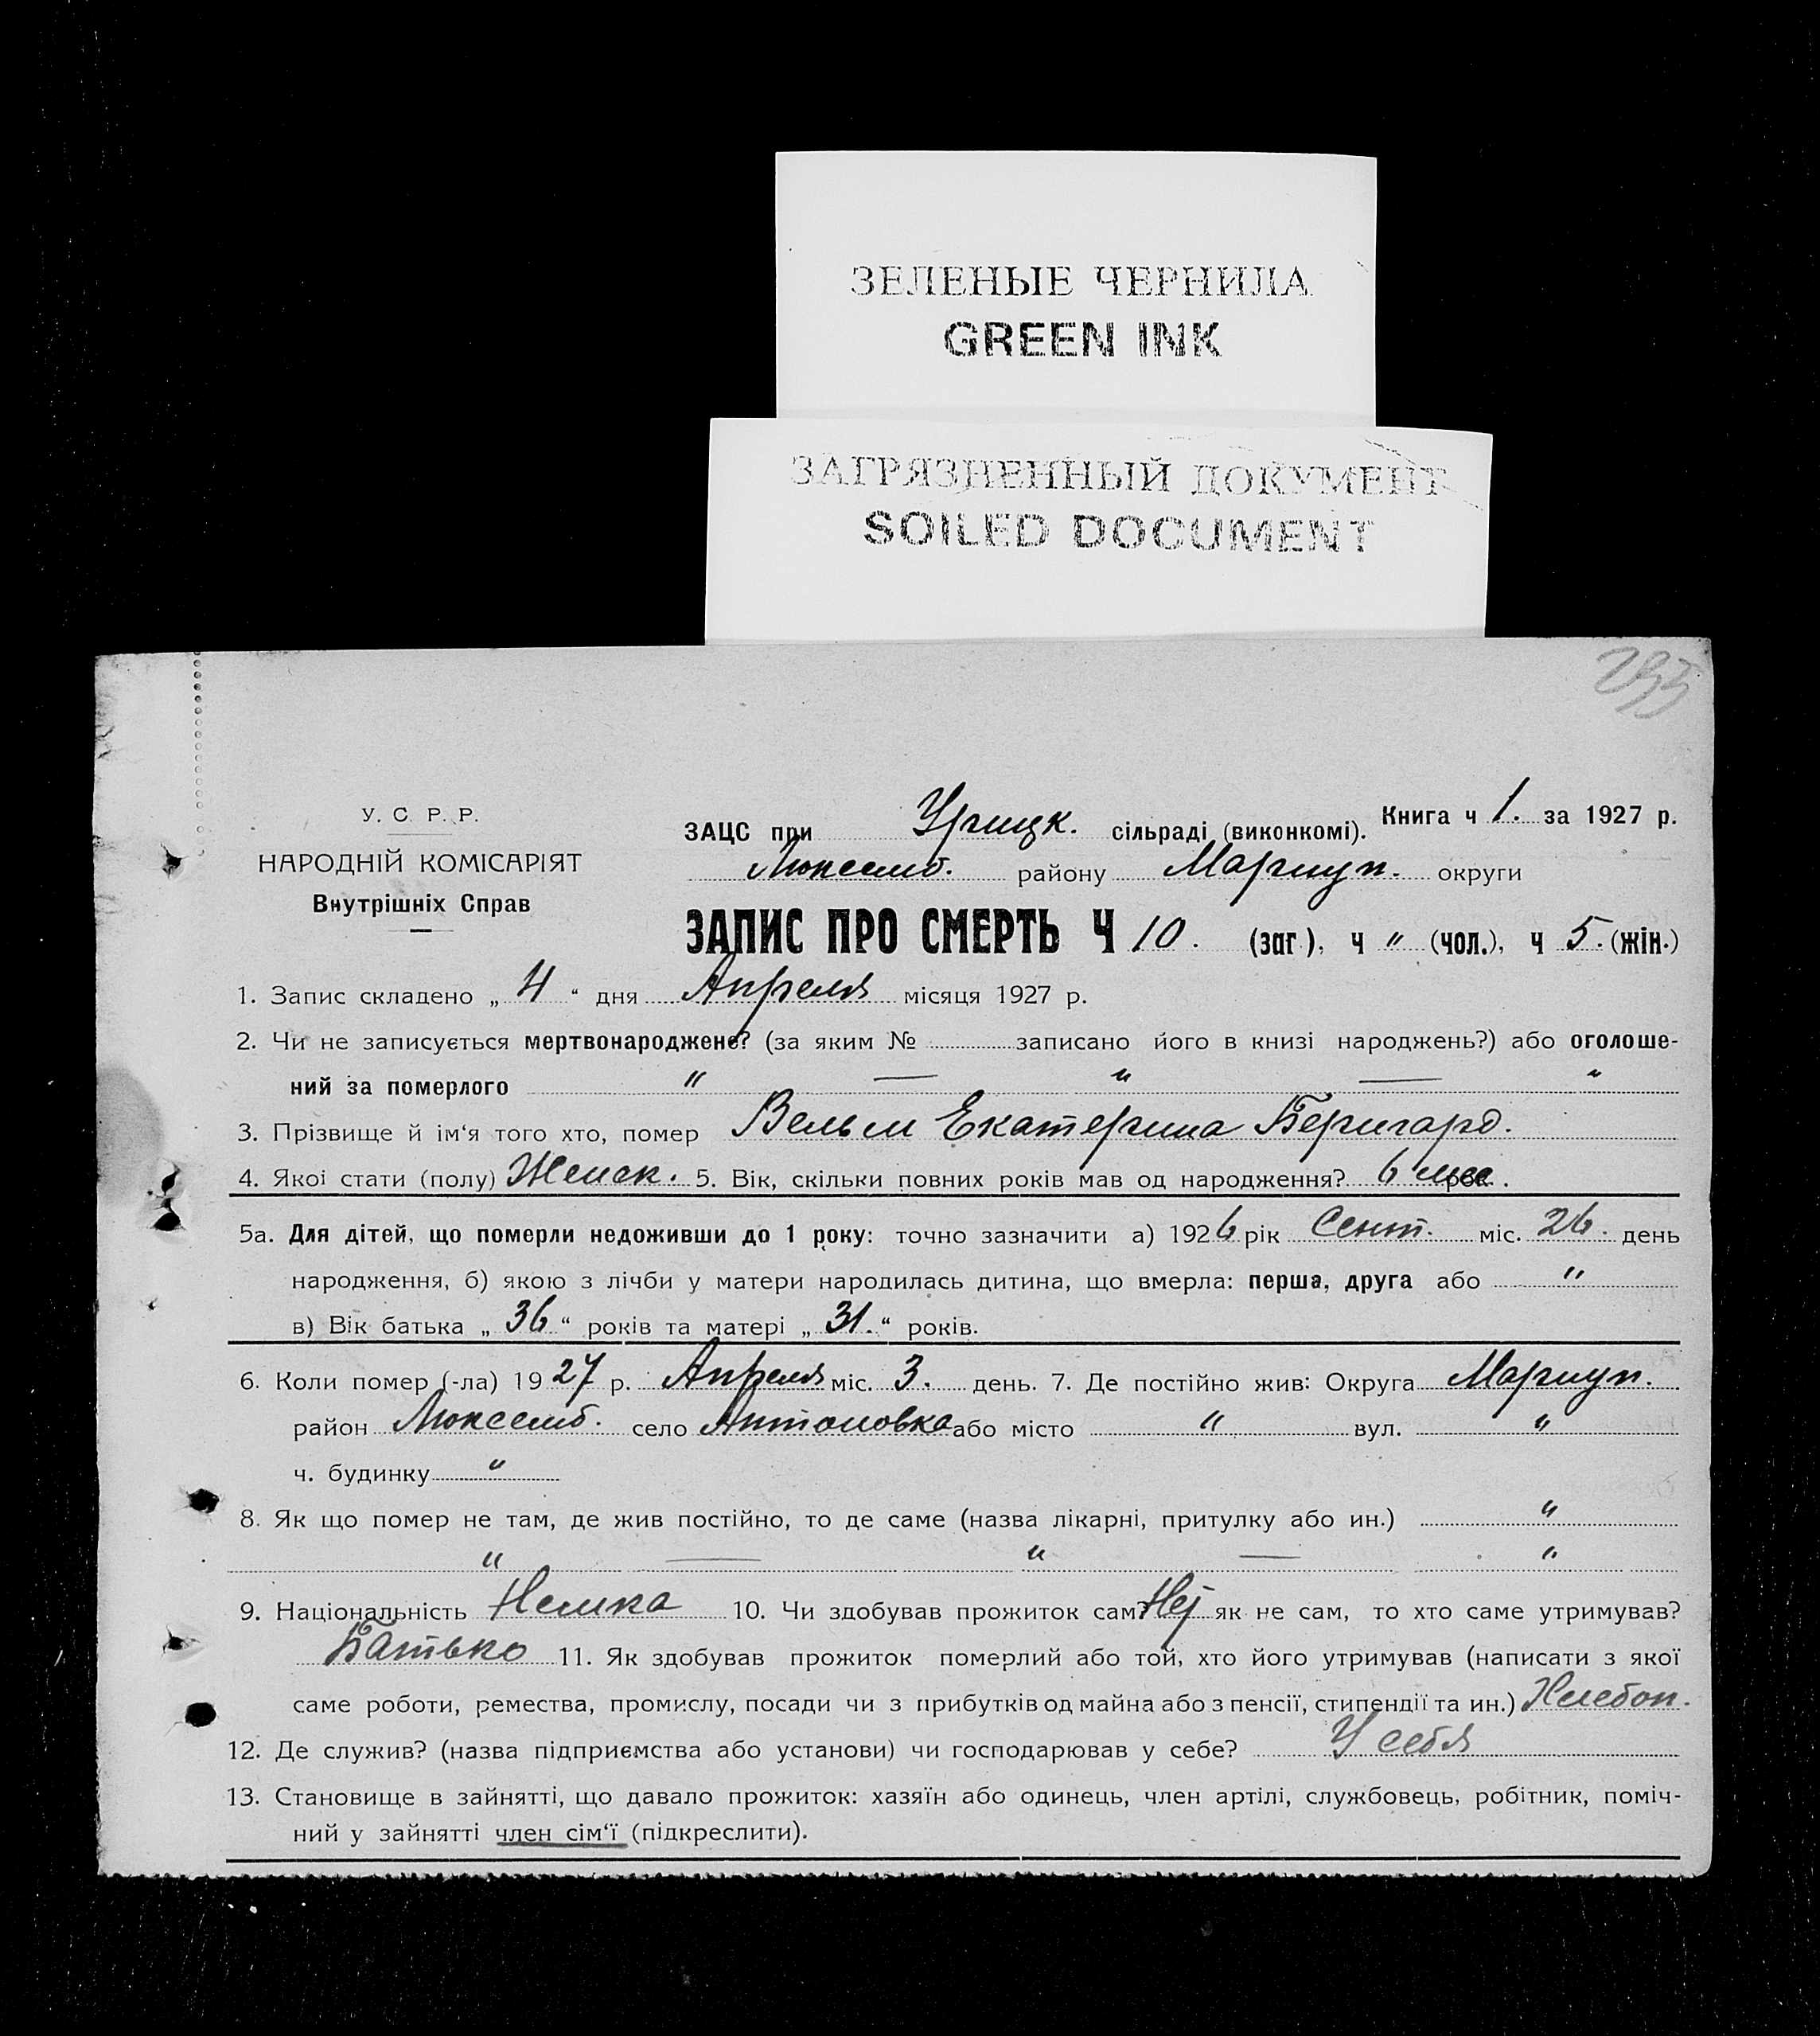 ЗЕЛЕНЫЕ ЧЕРНИЛА
GREEN INK
ЗАГРЯЗНЕННЫЙ ДОКУМЕНТ
SOILED DOCUMENT
У. С. Р. Р.
НАРОДНІЙ КОМІСАРІЯТ
Внутрішніх Справ
ЗАЦС при Урицк. сільраді (виконкомі). Книга ч 1. за 1927 р.
Люксемб. району Мариуп. округи
ЗАПИС ПРО СМЕРТЬ Ч 10. (заг.), ч " (чол.), ч 5. (жін.)
1. Запис складено „ 4 “ дня Апреля місяця 1927 р.
2. Чи не записується мертвонароджене? (за яким № записано його в книзі народжень?) або оголоше-
ний за померлого " — " — "
3. Прізвище й ім‘я того хто, помер Вельм Екатерина Беригард.
4. Якої стати (полу) Женск. 5. Вік, скільки повних років мав од народження? 6 мес.
5а. Для дітей, що померли недоживши до 1 року: точно зазначити а) 1926 рік Сент. міс. 26. день
народження, б) якою з лічби у матери народилась дитина, що вмерла: перша, друга або "
в) Вік батька „ 36 “ років та матері „ 31. “ років.
6. Коли помер (-ла) 1927 р. Апреля міс. 3. день. 7. Де постійно жив: Округа Мариуп.
район Люксемб. село Антоновка або місто " вул. "
ч. будинку "
8. Як що помер не там, де жив постійно, то де саме (назва лікарні, притулку або ин.) "
" — " — "
9. Національність Немка 10. Чи здобував прожиток сам? як не сам, то хто саме утримував?
Батько 11. Як здобував прожиток померлий або той, хто його утримував (написати з якої
саме роботи, ремества, промислу, посади чи з прибутків од майна або з пенсії, стипендії та ин.) Хлебоп.
12. Де служив? (назва підприємства або установи) чи господарював у себе? У себя
13. Становище в зайнятті, що давало прожиток: хазяїн або одинець, член артілі, службовець, робітник, поміч-
ний у зайнятті член сім‘ї (підкреслити).